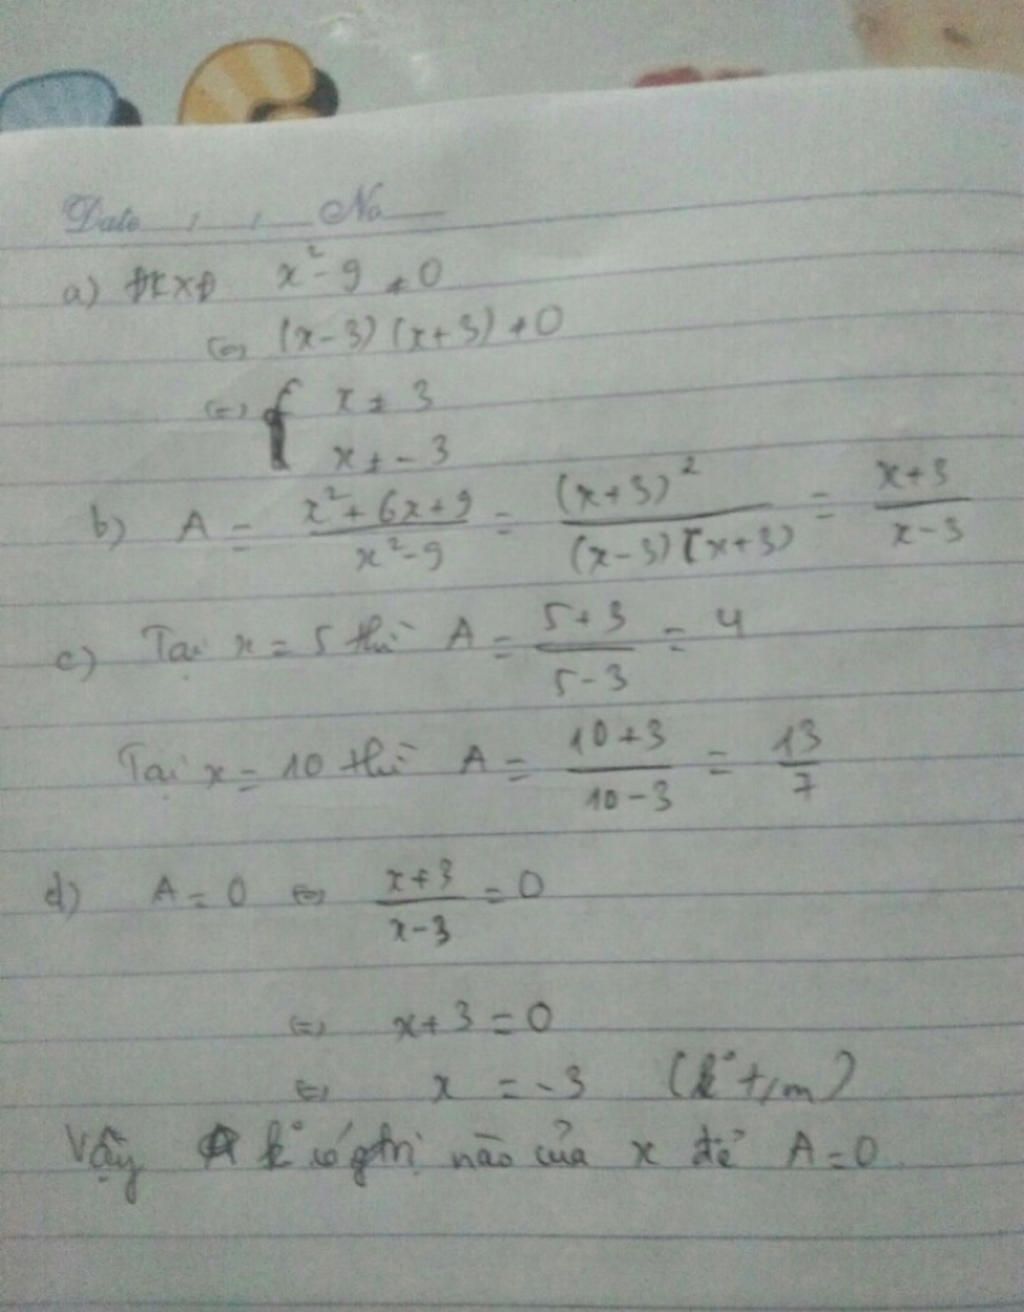 Date / / No
a) ĐKXĐ x² - 9 ≠ 0
(=) (x-3)(x+3) ≠ 0
(=) { x ≠ 3
x ≠ -3
b) A = \frac{x²+6x+9}{x²-9} = \frac{(x+3)²}{(x-3)(x+3)} = \frac{x+3}{x-3}
c) Tại x = 5 thì A = \frac{5+3}{5-3} = 4
Tại x = 10 thì A = \frac{10+3}{10-3} = \frac{13}{7}
d) A = 0 (=) \frac{x+3}{x-3} = 0
(=) x+3 = 0
(=) x = -3 (k° t/m)
Vậy k° có gtrị nào của x để A = 0.